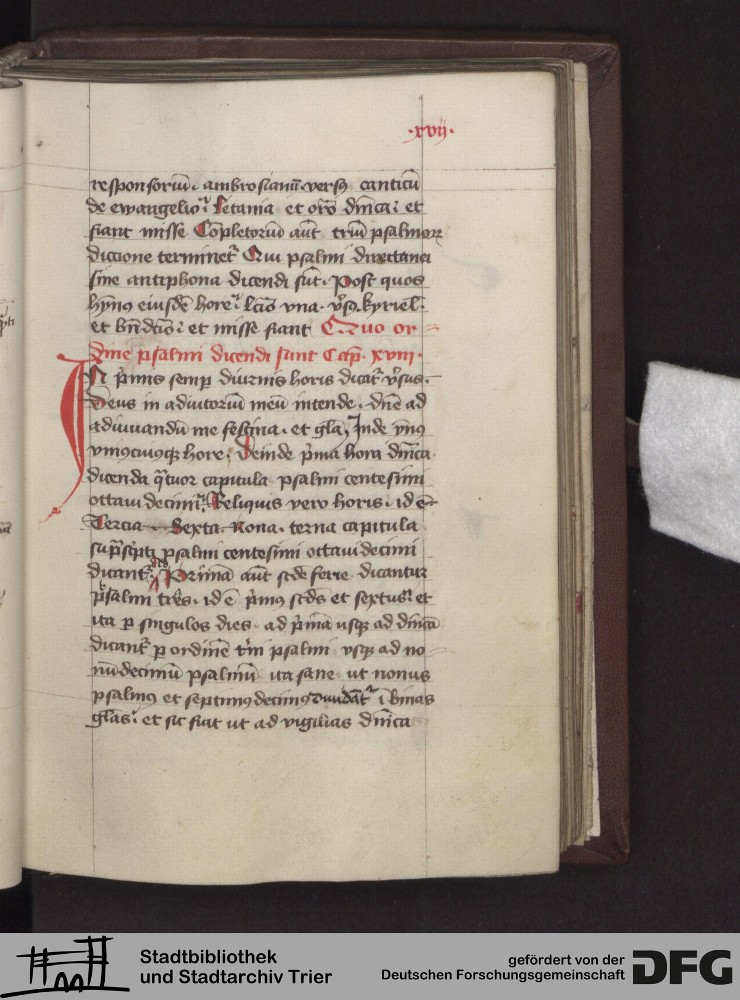 ·xvij·
responsoriū. ambrosianū. versꝫ canticū
de ewangelio: Letania et orō dm̄ca: et
fiant misse Cōpletoriū aūt triū psalmoꝝ
diccione terminet᷑ Qui psalmi directanei
sine antiphona dicendi sūt. Post quos
hȳnꝯ eiusdē hore: lc̄io vna. v̄so. kyriel.
et bn̄dc̄io: et misse fiant Quo or
dine psalmi dicendi sunt Cap̄. xviij.
In p̄mis semꝑ diurnis horis dicat᷑ v̄sus.
Deus in adiutoriū meū intende. dn̄e ad
adiuuandū me festina. et gl̄a, Inde ympꝯ
vniꝯcuiusqꝫ hore. Deinde p̄ma hora dm̄ca
dicenda q̄tuor capitula psalmi centesimi
octaui decimi. Reliquis vero horis. id ē
Tercia Sexta. Nona. terna capitula
sup̄sc̄pti psalmi centesimi octaui decimi
dicant᷑. Primā aūt scd̄e ferie dicantur
psalmi tres. id ē p̄mꝰ scd̄s et sextus: et
ita ꝑ singulos dies. ad p̄mā vsqꝫ ad dm̄cā
dicant᷑ ꝑ ordinē t̄ni psalmi vsqꝫ ad no
nū decimū psalmū ita sane ut nonus
psalmꝰ et septimꝰ decimꝰ diuidāt᷑ ī binas
gl̄as. et sic fiat ut ad vigilias dm̄ca
Stadtbibliothek
und Stadtarchiv Trier
gefördert von der
Deutschen Forschungsgemeinschaft
DFG